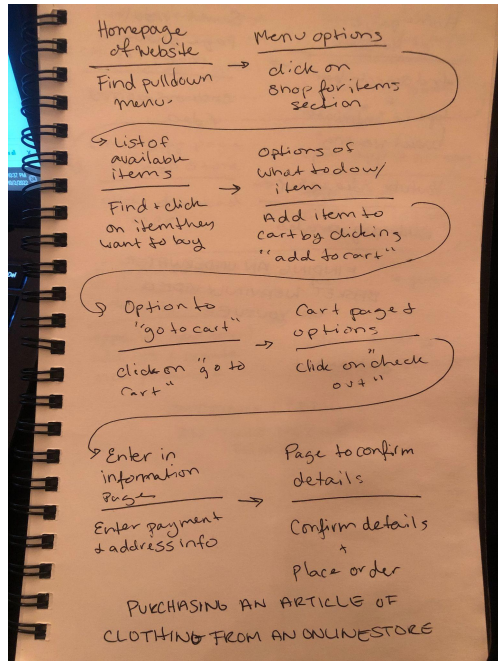 Homepage
of Website
Find pulldown
menu.
Menu options
click on
shop for items
section
List of
available
items
Find + click
on item they
want to buy
Options of
what to do w/
item
Add item to
cart by clicking
"add to cart"
Option to
"go to cart"
click on "go to
cart"
Cart page +
options
click on "check
out"
Enter in
information
Pages
Enter payment
+ address info
Page to confirm
details
Confirm details
+
Place order
PURCHASING AN ARTICLE OF
CLOTHING FROM AN ONLINE STORE